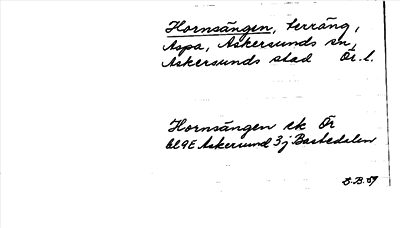 Hornsängen, terräng,
Aspa, Askersunds sn,
Askersunds stad Ör. l.
Hornsängen ek Ör
bl 9E Askersund 3j Bastedalen
B.B. 59